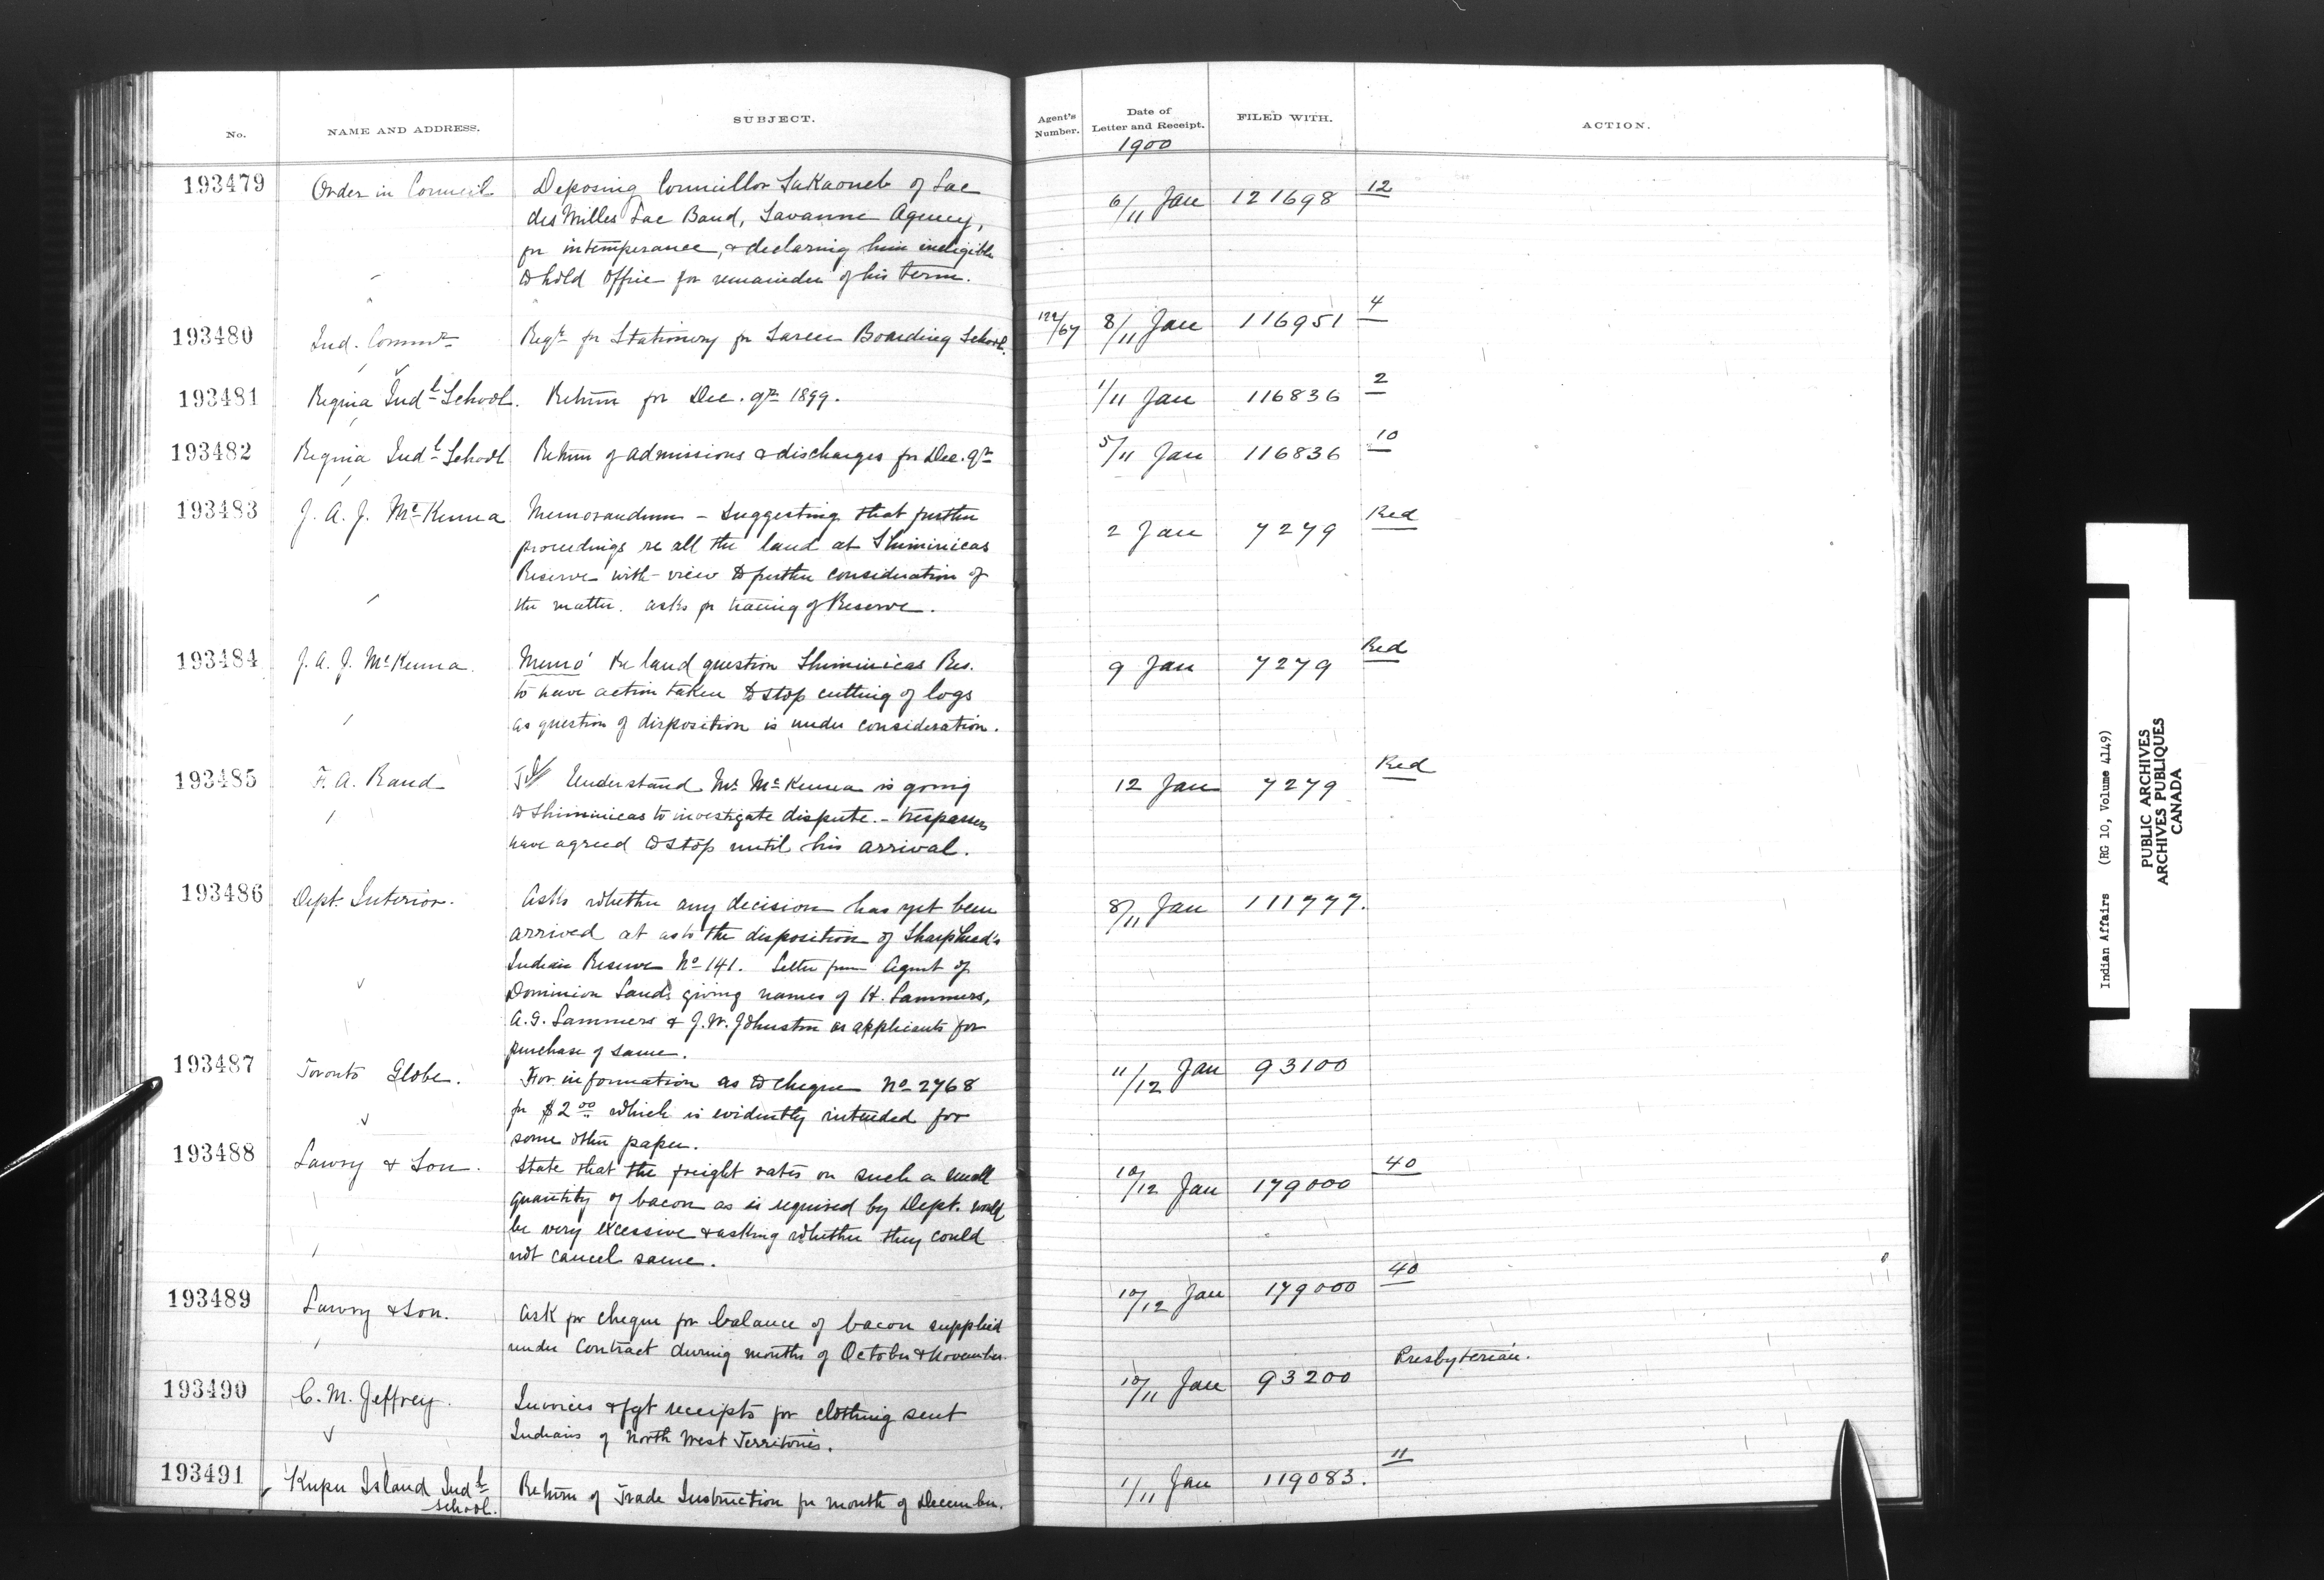 No. NAME AND ADDRESS. SUBJECT. Agent's Number. Date of Letter and Receipt. FILED WITH. ACTION.
1900
193479 Order in Council Deposing Councillor of Lac 6/11 Jan 121698 12
des Milles Lac Band, Savanne Agency,
for intemperance, & declaring him ineligible
to hold office for remainder of his term.
193480 Ind. Commr Reqn for Stationery for Sarcee Boarding School. 122/67 8/11 Jan 116951 4
193481 Regina Indl School. Return for Dec. qr 1899. 1/11 Jan 116836 2
193482 Regina Indl School Return of admissions & discharges for Dec. qr 5/11 Jan 116836 10
193483 J. A. J. McKenna Memorandum - Suggesting that further 2 Jan 7279 Red
proceedings re all the land at Shiminicas
Reserve with view to further consideration of
the matter. asks for tracing of Reserve.
193484 J. A. J. McKenna. Memo' Re land question Shiminicas Res. 9 Jan 7279 Red
to have action taken to stop cutting of logs
as question of disposition is under consideration.
193485 F. A. Rand Understand Mr McKenna is going 12 Jan 7279 Red
to Shiminicas to investigate dispute. - trespassers
have agreed to stop until his arrival.
193486 Dept. Interior. Asks whether any decision has yet been 8/11 Jan 111777.
arrived at as to the disposition of Sharphead's
Indian Reserve No 141. Letter from Agent of
Dominion Lands giving names of H. Sammers,
A. G. Sammers & J. W. Johnston as applicants for
purchase of same.
193487 Toronto Globe. For information as to cheque No 2768 11/12 Jan 93100
for $2 00 which is evidently intended for
some other paper.
193488 Lawry & Son. State that the freight rates on such a small 10/12 Jan 179000 40
quantity of bacon as is required by Dept. would
be very excessive & asking whether they could
not cancel same.
193489 Lawry & Son. Ask for cheque for balance of bacon supplied 10/12 Jan 179000 40
under Contract during months of October & November.
193490 C. M. Jeffrey. Invoices & fgt receipts for clothing sent 10/11 Jan 93200 Presbyterian.
Indians of North West Territories.
193491 Kuper Island Indl Return of Trade Instruction for month of December. 1/11 Jan 119083. 11
School.
Indian Affairs (RG 10, Volume 4149)
PUBLIC ARCHIVES
ARCHIVES PUBLIQUES
CANADA